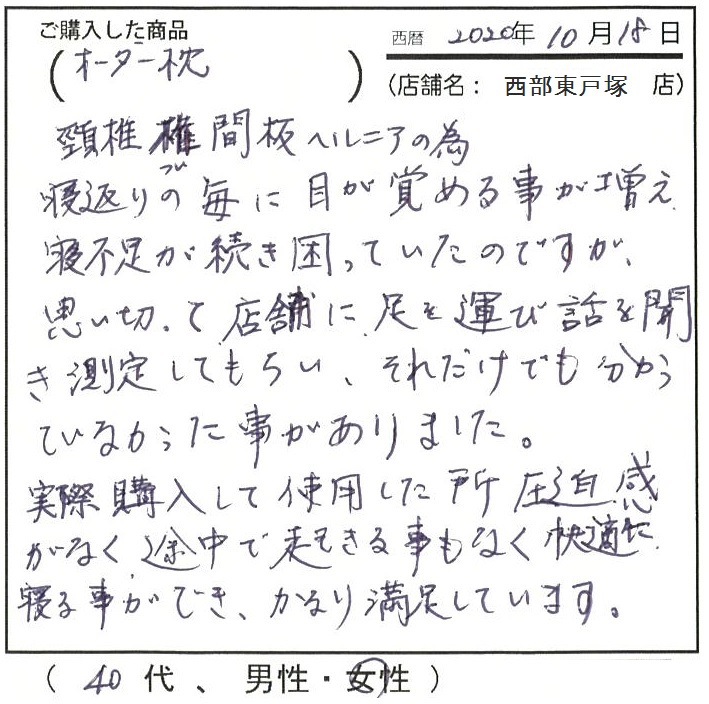 ご購入した商品
西暦 2020年 10月18日
(オーダー枕)
(店舗名: 西部東戸塚 店)
頸椎 間板ヘルニアの為
寝返りのの毎に目が覚める事が増え
づ
寝不足が続き困っていたのですが、
思い切って店舗に足を運び話を聞
き測定してもらい、それだけでも分かっ
ていなかった事がありました。
実際購入して使用した所圧迫感
がなく途中で起きる事もなく快適に
寝る事ができ、かなり満足しています。
(40代、男性・女性)